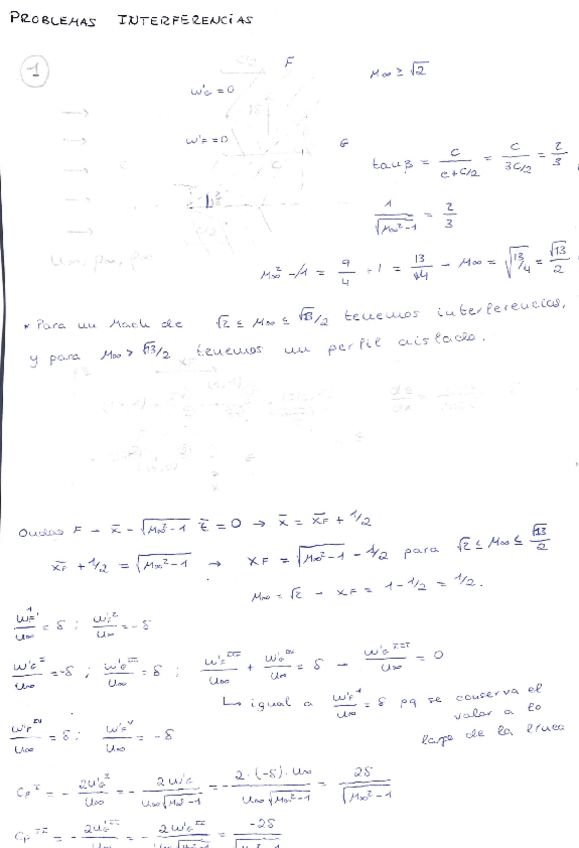 PROBLEMAS INTERFERENCIAS
1
F
M∞ ≥ √2
w'G = 0
w'F = 0
G
tanβ = c/(c+c/2) = c/(3c/2) = 2/3
1/√(M∞²-1) = 2/3
M∞² - 1 = 9/4 + 1 = 13/4 → M∞ = √(13/4) = √13/2
* Para un Mach de √2 ≤ M∞ ≤ √13/2 tenemos interferencias,
y para M∞ > √13/2 tenemos un perfil aislado.
Ondas F → x̄ - √(M∞²-1) z̄ = 0 → x̄ = x̄F + 1/2
x̄F + 1/2 = √(M∞²-1) → xF = √(M∞²-1) - 1/2 para √2 ≤ M∞ ≤ √13/2
M∞ = √2 → xF = 1 - 1/2 = 1/2.
w'F^I/U∞ = δ ; w'F^II/U∞ = -δ
w'G^I/U∞ = -δ ; w'G^II/U∞ = δ ; w'G^III/U∞ + w'F^IV/U∞ = δ → w'G^III/U∞ = 0
↳ igual a w'F^I/U∞ = δ pq se conserva el
valor a lo
largo de la línea
w'F^IV/U∞ = δ ; w'F^V/U∞ = -δ
Cp^I = - 2u'G^I/U∞ = - 2w'G/(U∞√(M∞²-1)) = - 2·(-δ)·U∞/(U∞√(M∞²-1)) = 2δ/√(M∞²-1)
Cp^II = - 2u'G^II/U∞ = - 2w'G^II/(U∞√(M∞²-1)) = -2δ/√(M∞²-1)